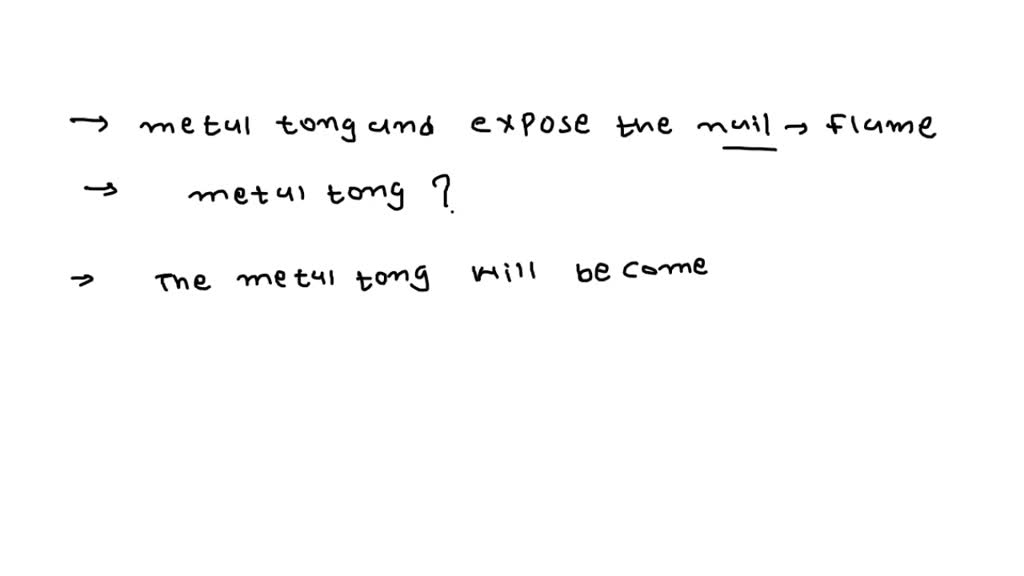 → metal tong and expose the nail → flame
→ metal tong ?
→ The metal tong will become